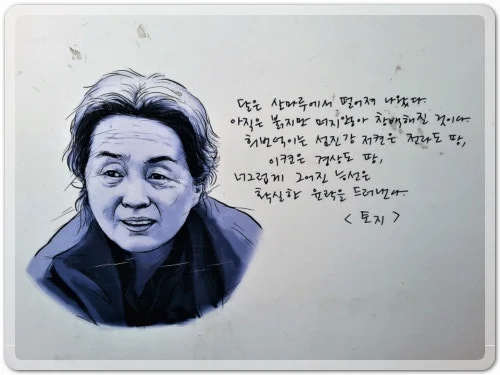 달은 산마루에서 떨어져 나왔다.
아직은 붉지만 머지않아 창백해질 것이다.
희번덕이는 섬진강 저켠은 전라도 땅,
이켠은 경상도 땅,
너그럽게 그어진 능선은
확실한 윤곽을 드러낸다.
< 토지 >